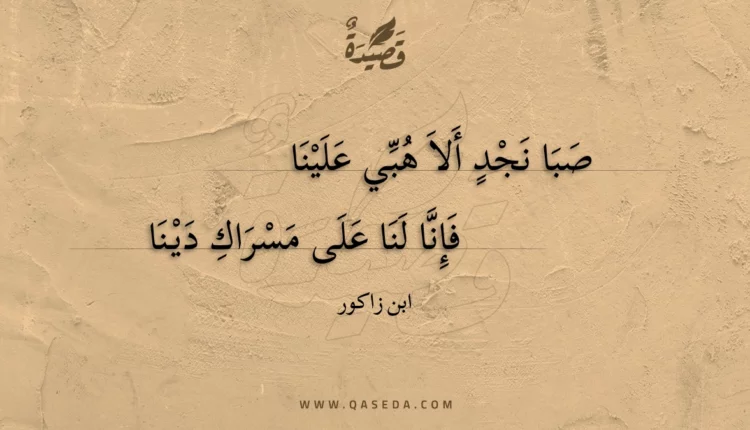 قَصِيدَةٌ
صَبَا نَجْدٍ أَلاَ هُبِّي عَلَيْنَا
فَإِنَّا لَنَا عَلَى مَسْرَاكِ دَيْنَا
ابن زاكور
WWW.QASEDA.COM